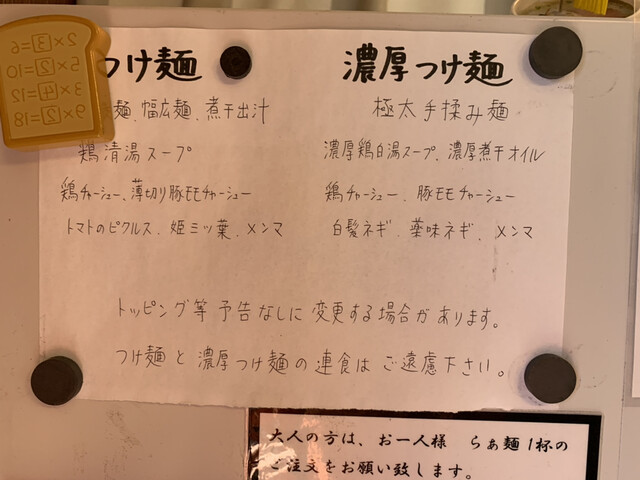 つけ麺
麺、幅広麺、煮干出汁
鶏清湯スープ
鶏チャーシュー、薄切り豚モモチャーシュー
トマトのピクルス、姫ミツ葉、メンマ
濃厚つけ麺
極太手揉み麺
濃厚鶏白湯スープ、濃厚煮干オイル
鶏チャーシュー、豚モモチャーシュー
白髪ネギ、薬味ネギ、メンマ
トッピング等予告なしに変更する場合があります。
つけ麺と濃厚つけ麺の連食はご遠慮下さい。
大人の方は、お一人様 らぁ麺1杯の
ご注文をお願い致します。
2×3=6
5×2=10
3×4=12
9×2=18